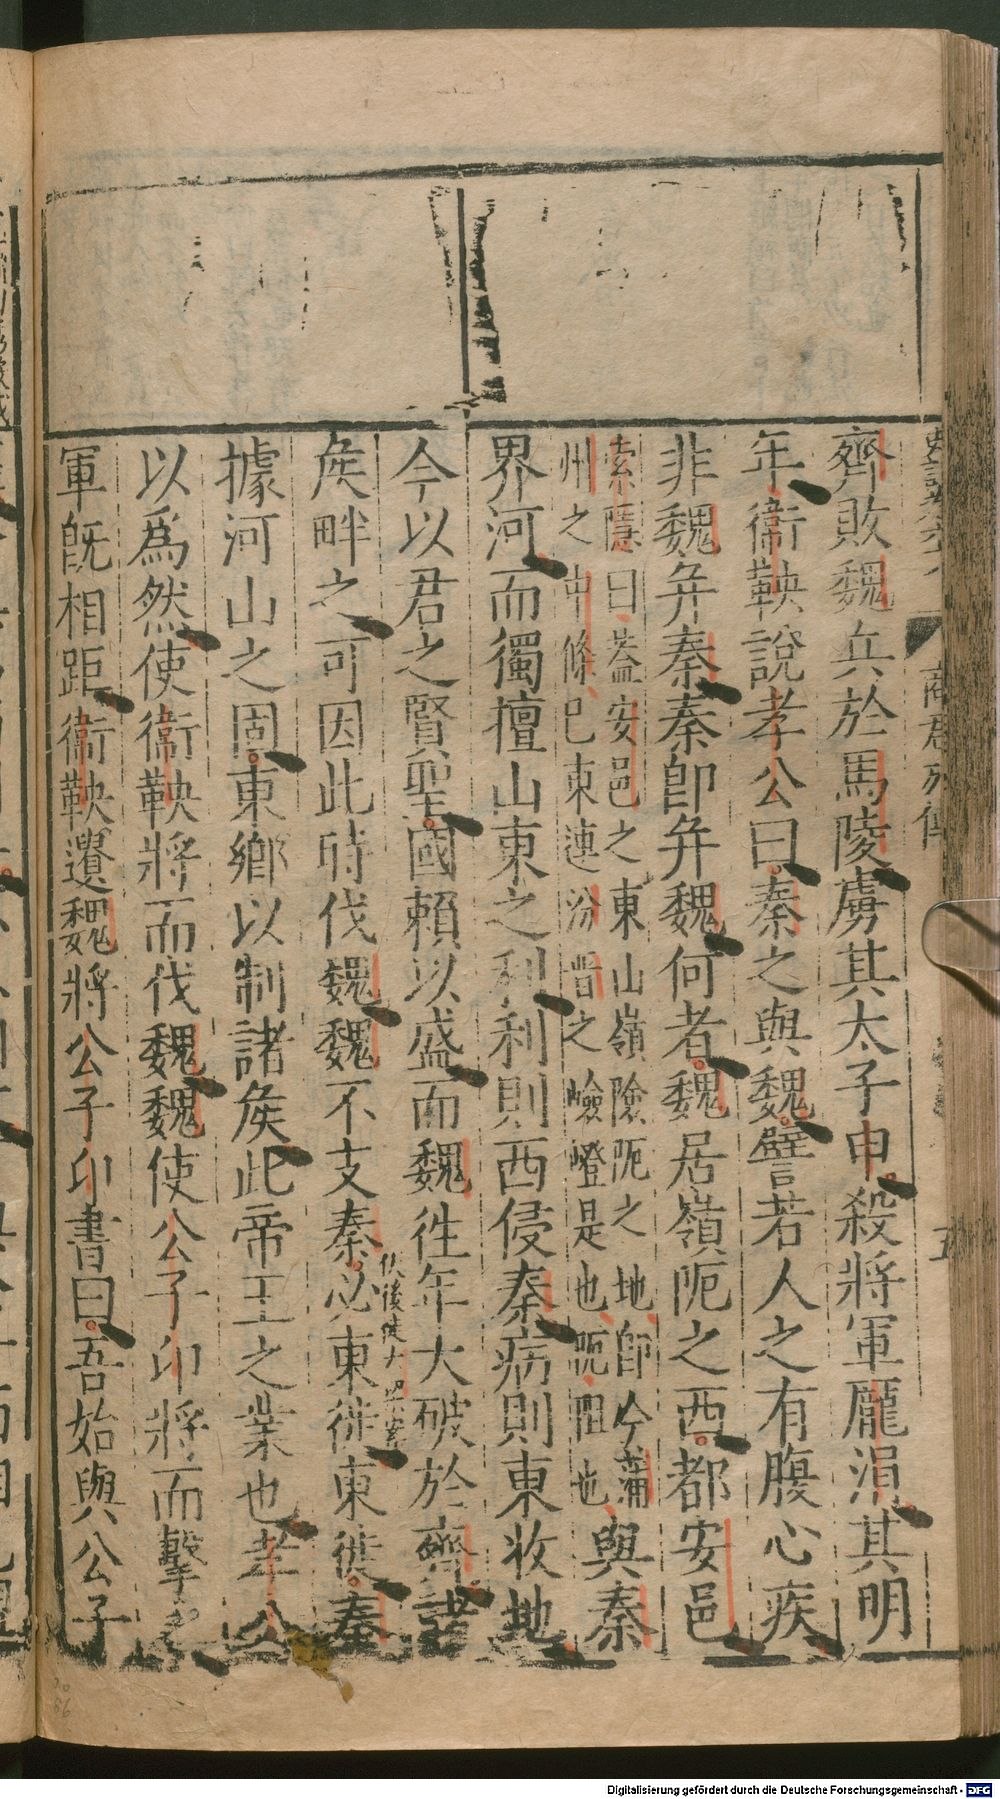 商君列傳
五
齊敗魏兵於馬陵虜其太子申殺將軍龐涓其明
年衞鞅說孝公曰秦之與魏譬若人之有腹心疾
非魏并秦秦卽并魏何者魏居嶺阨之西都安邑
索隱曰蓋安邑之東山嶺險阨之地卽今蒲
州之中條已東連汾晉之嶮嶝是也阨阻也
與秦
界河而獨擅山東之利利則西侵秦病則東收地
今以君之賢聖國賴以盛而魏往年大破於齊諸
矦畔之可因此時伐魏魏不支秦必東徙東徙秦
據河山之固東鄉以制諸矦此帝王之業也孝公
以爲然使衞鞅將而伐魏魏使公子卬將而擊之
軍旣相距衞鞅遺魏將公子卬書曰吾始與公子
Digitalisierung gefördert durch die Deutsche Forschungsgemeinschaft - DFG